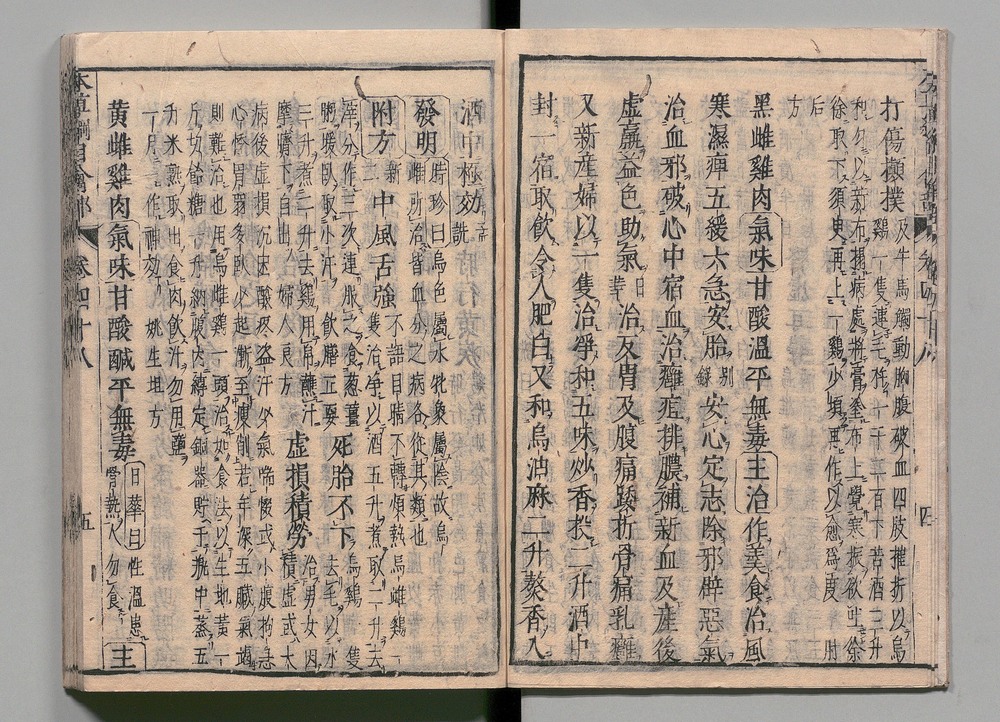 打傷顚撲及牛馬觸動胸腹破血四肢摧折以烏
雞一隻連毛杵一千二百下苦酒三升
和勻以新布搨病處將膏塗布上覺寒振欲吐徐
徐取下須臾再上一雞少頃再作以愈爲度
肘
後
方
黑雌雞肉氣味甘酸溫平無毒主治作羹食治風
寒濕痺五緩六急安胎別錄安心定志除邪辟惡氣
治血邪破心中宿血治癰疽排膿補新血及産後
虛羸益色助氣日華治反胃及腹痛踒折骨痛乳癰
又新産婦以一隻治淨和五味炒香投二升酒中
封一宿取飲令人肥白又和烏油麻二升熬香入
酒中極効詵
發明時珍曰烏色屬水牝象屬陰故烏
雌所治皆血分之病各從其類也
附方新三中風舌強不語目睛不轉煩熱烏雌雞一
隻治淨以酒五升煮取二升去
滓分作三次連服之食葱薑
粥暖臥取小汗飲膳正要死胎不下烏雞一隻
去毛以水
三升煮二升去雞用帛蘸汁
摩臍下自出婦人良方虛損積勞治男女因
積虛或大
病後虛損沉困酸疼盜汗少氣喘惙或小腹拘急
心悸胃弱多臥少起漸至瘦削若年深五臟氣竭
則難治也用烏雌雞一頭治如食法以生地黄一
斤切飴糖一升納腹内縛定銅器貯于瓶中蒸五
升米熟取出食肉飲汁勿用鹽
一月一作神効姚僧垣方
黄雌雞肉氣味甘酸鹹平無毒日華曰性溫患
骨熱人勿食主
五